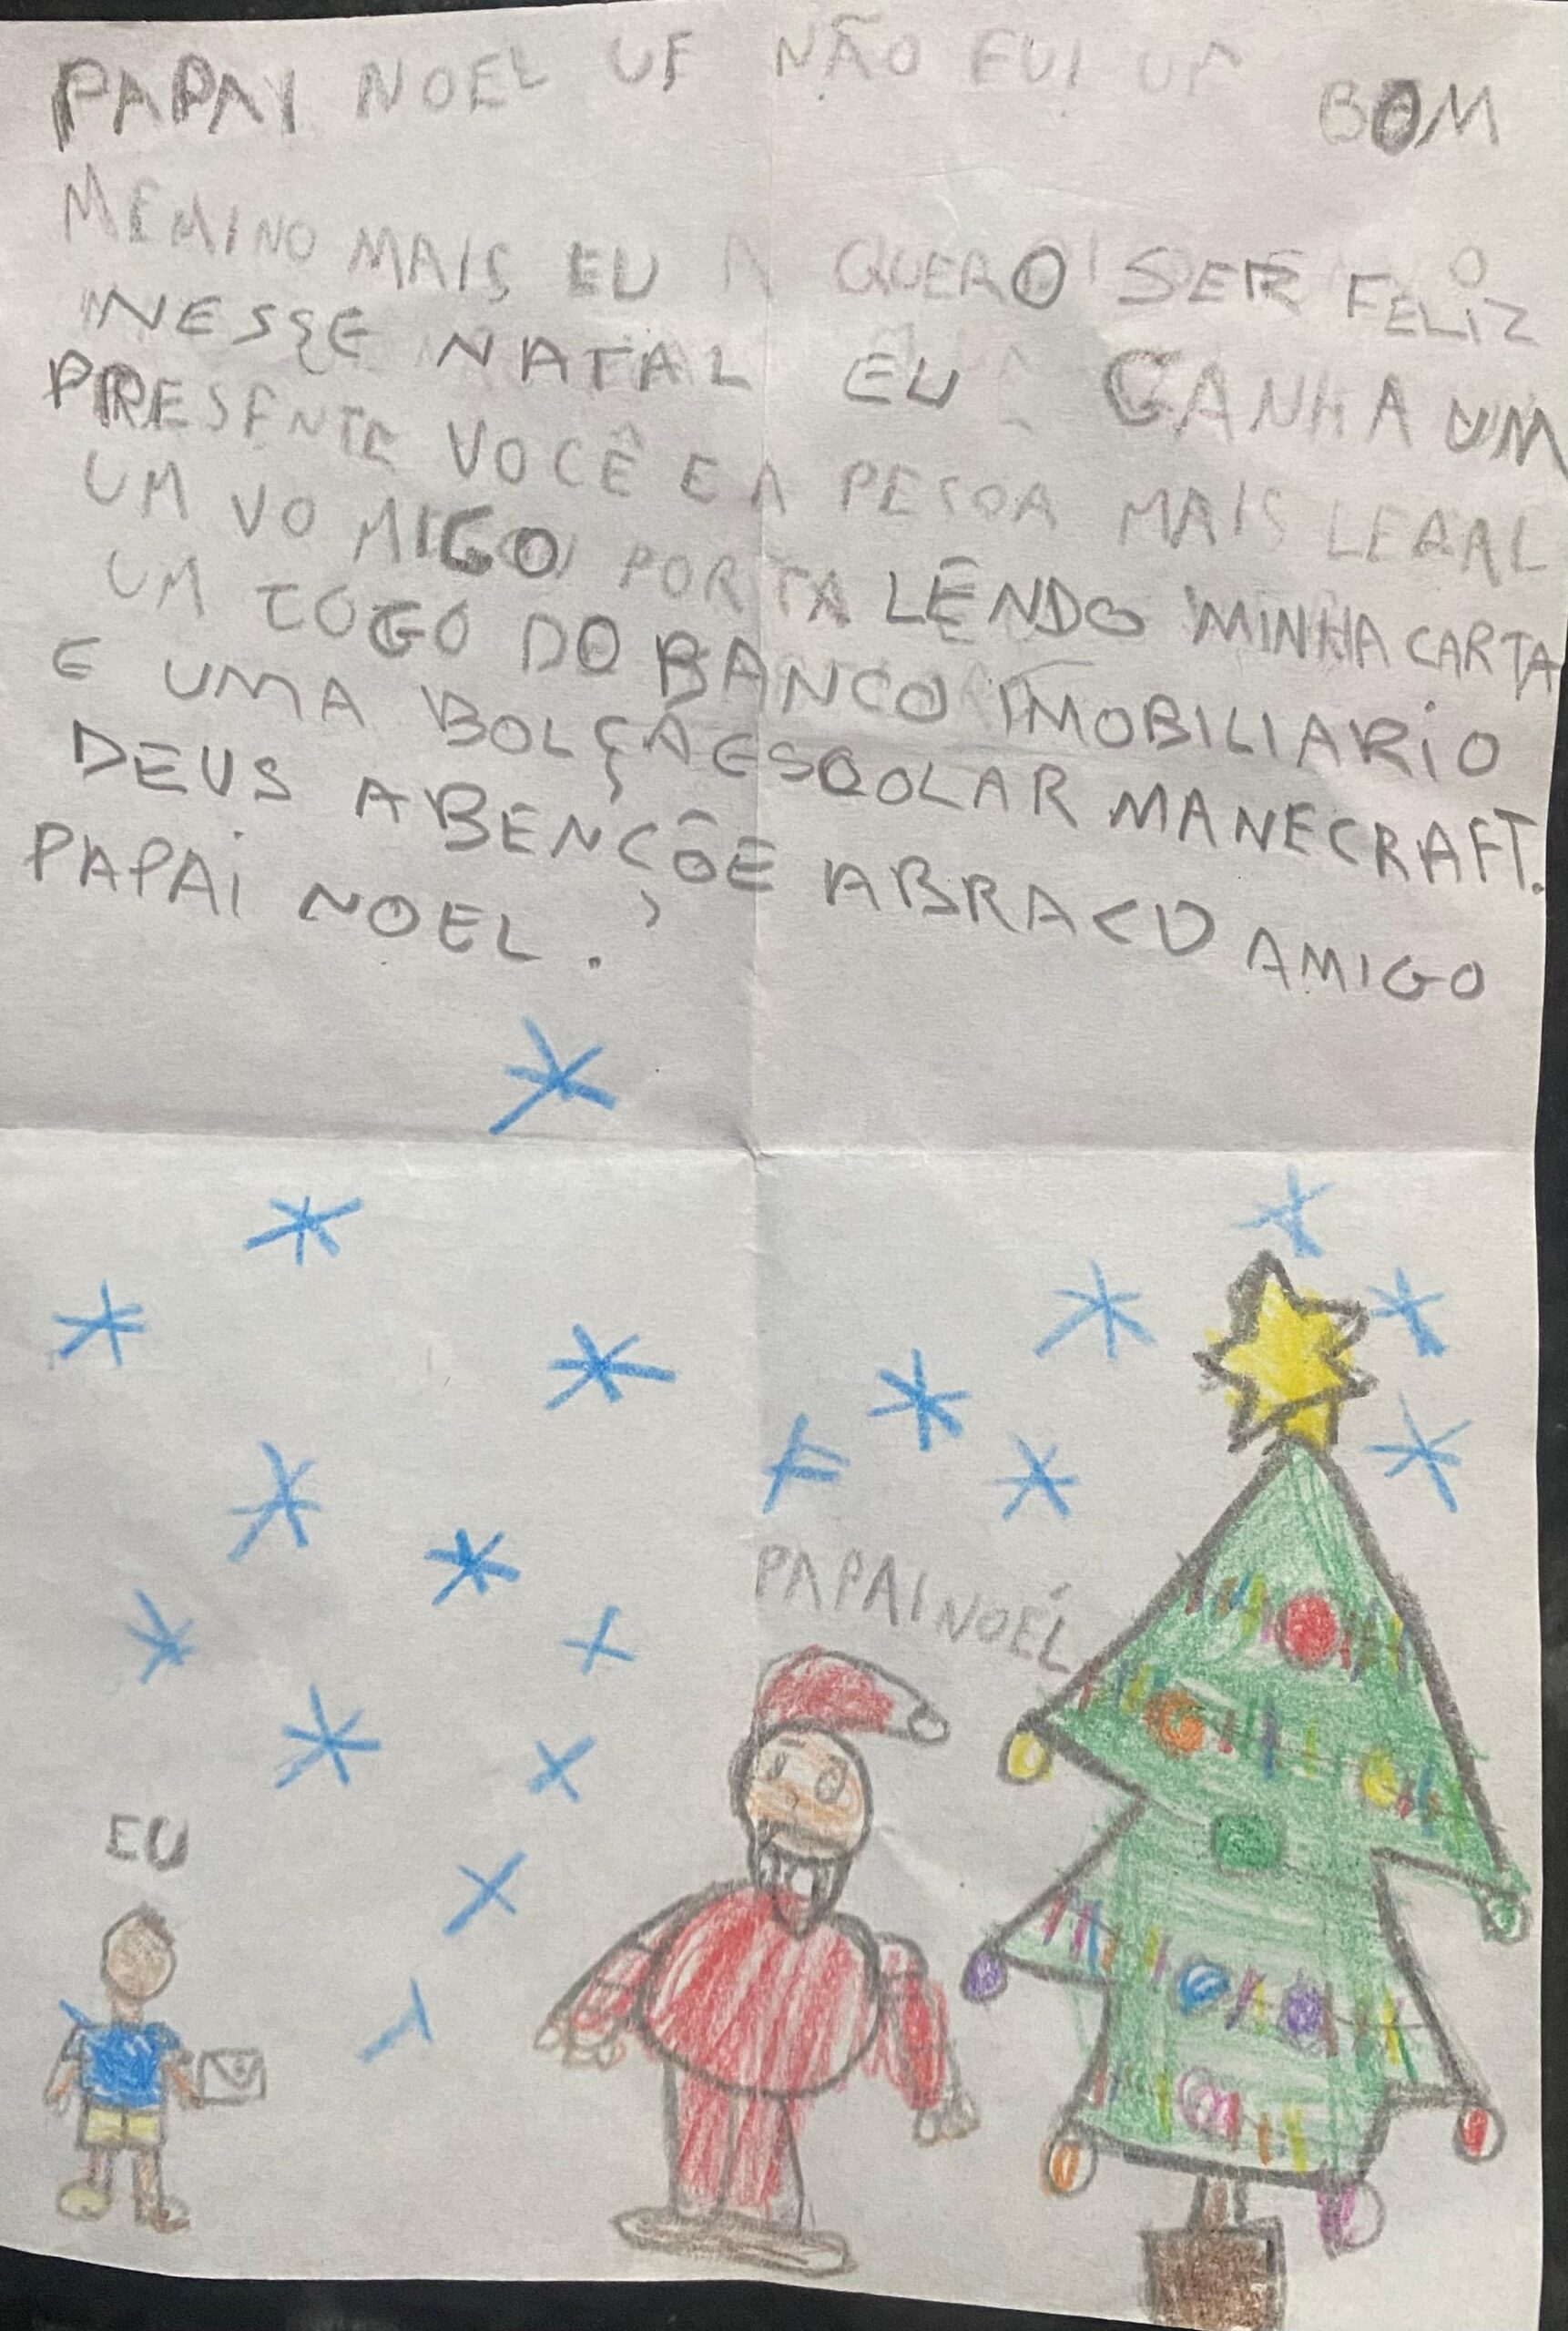 PAPAI NOEL UF NÃO FUI UM BOM
MEMINO MAIS EU QUERO SER FELIZ
NESSE NATAL EU GANHA UM
PRESENTE VOCÊ E A PESOA MAIS LEGAL
UM VO MIGO PORTA LENDO MINHA CARTA
UM JOGO DO BANCO IMOBILIARIO
E UMA BOLÇA ESCOLAR MANECRAFT.
DEUS ABENÇÕE ABRACU AMIGO
PAPAI NOEL.
PAPAI NOEL
EU